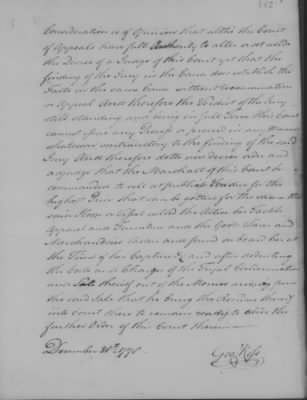 Consideration is of Opinion that altho the Court
of Appeals have full Authority to alter or set aside
the Decree of a Judge of this Court yet that the
finding of the Jury in the Cause does establish the
Facts in the same Cause without Reexamination
or Appeal And therefore the Verdict of the Jury
still standing and being in full Force this Court
cannot issue any Process or proceed in any Manner
whatsoever contradictory to the finding of the said
Jury And therefore doth now Decree order and
adjudge that the Marshall of this Court be
commanded to sell at publick Vendue for the
highest Price that can be gotten for the same the
said Sloop or Vessel called the Active her Tackle
Apparel and Furniture and the Goods Wares and
Merchandizes laden and found on board her at
the Time of her Capture, and after deducting
the Costs and Charges of the Tryal Condemnation
and Sale thereof out of the Monies arising from
the said Sale that he bring the Residue thereof
into Court there to remain ready to abide the
further Order of this Court therein—
December 28th 1778— Geo Ross